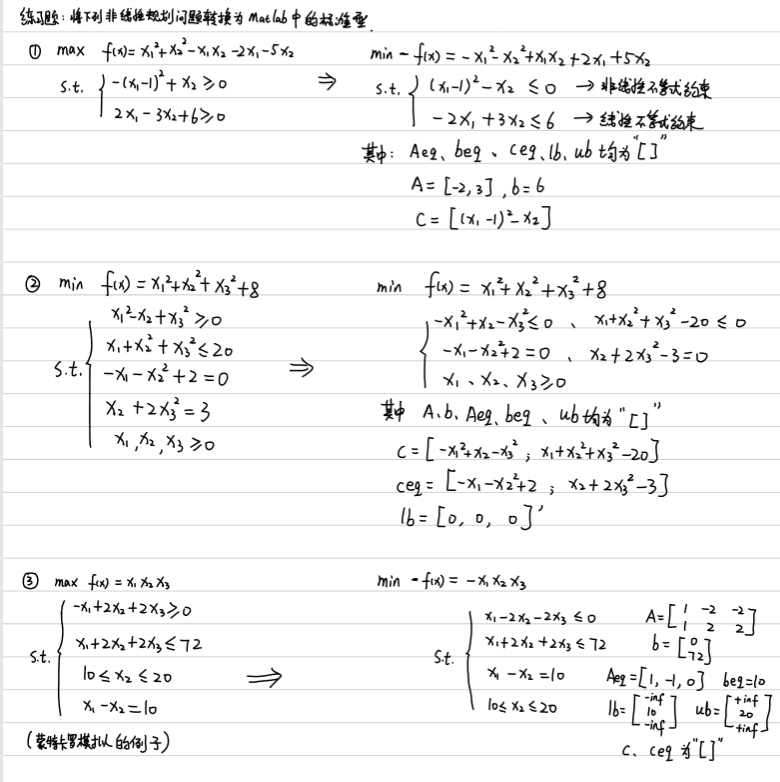 练习题：将下列非线性规划问题转换为Matlab中的标准型.
① max f(x)= x₁²+x₂²-x₁x₂-2x₁-5x₂
s.t. { -(x₁-1)²+x₂≥0
2x₁-3x₂+6≥0
⇒
min -f(x) = -x₁²-x₂²+x₁x₂+2x₁+5x₂
s.t. { (x₁-1)²-x₂ ≤0 → 非线性不等式约束
-2x₁+3x₂≤6 → 线性不等式约束
其中: Aeq、beq、ceq、lb、ub均为"[]"
A=[-2,3], b=6
C=[(x₁-1)²-x₂]
② min f(x)=x₁²+x₂²+x₃²+8
s.t. { x₁²-x₂+x₃²≥0
x₁+x₂²+x₃²≤20
-x₁-x₂²+2=0
x₂+2x₃²=3
x₁,x₂,x₃≥0
⇒
min f(x)= x₁²+x₂²+x₃²+8
{ -x₁²+x₂-x₃²≤0 、 x₁+x₂²+x₃²-20≤0
-x₁-x₂²+2=0 、 x₂+2x₃²-3=0
x₁、x₂、x₃≥0
其中 A.b. Aeq、beq、ub均为"[]"
C=[-x₁²+x₂-x₃² ; x₁+x₂²+x₃²-20]
ceq=[-x₁-x₂²+2 ; x₂+2x₃²-3]
lb=[0, 0, 0]'
③ max f(x)=x₁x₂x₃
s.t. { -x₁+2x₂+2x₃≥0
x₁+2x₂+2x₃≤72
10≤x₂≤20
x₁-x₂=10
(蒙特卡罗模拟的例子)
⇒
min -f(x) = -x₁x₂x₃
s.t. { x₁-2x₂-2x₃≤0 A=[1 -2 -2
1 2 2]
x₁+2x₂+2x₃≤72 b=[0
72]
x₁-x₂=10 Aeq=[1,-1,0] beq=10
10≤x₂≤20 lb=[-inf
10
-inf] ub=[+inf
20
+inf]
c、ceq为"[]"